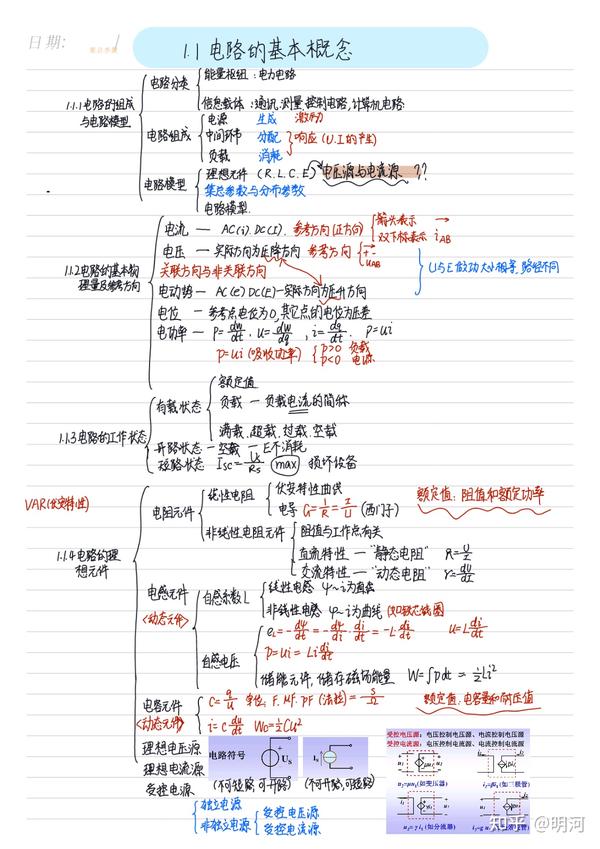 日期:
1.1 电路的基本概念
1.1.1电路的组成与电路模型
电路分类
能量枢纽：电力电路
信息载体：通讯.测量.控制电路,计算机电路
电路组成
电源 生成 激励
中间环节 分配
负载 消耗
响应(U.I的产生)
电路模型
理想元件 (R.L.C.E) 电压源与电流源 ??
集总参数与分布参数
电路模型.
1.1.2电路的基本物理量及参考方向
电流 — AC(i).DC(I). 参考方向(正方向)
箭头表示 →
双下标表示 iAB
电压 — 实际方向为正降方向 参考方向
+ -
uAB
关联方向与非关联方向
U与E做功大小相等,路径不同
电动势 — AC(e) DC(E)—实际方向为正升方向
电位 — 参考点电位为0,其它点的电位为压差
电功率 — P=dw/dt, u=dw/dq, i=dq/dt. p=ui
P=ui (吸收功率)
p>0 负载
p<0 电源
1.1.3电路的工作状态
有载状态
额定值
负载 — 负载电流的简称
满载.超载.过载.空载
开路状态 — 空载 — E不消耗
短路状态 Isc=Us/Rs (max) 损坏设备
VAR(伏安特性)
1.1.4电路的理想元件
电阻元件
线性电阻
伏安特性曲线
电导 G=1/R=I/U (西门子)
额定值：阻值和额定功率
非线性电阻元件
阻值与工作点有关
直流特性 — "静态电阻" R=U/I
交流特性 — "动态电阻" r=du/di
电感元件
<动态元件>
自感系数L
线性电感 ψ~i为直线
非线性电感 ψ~i为曲线 (如铁芯线圈
自感电压
eL=-dψ/dt=-dψ/di·di/dt=-L·di/dt u=L di/dt
p=ui=Li di/dt
储能元件,储存磁场能量 W=∫pdt=1/2Li²
电容元件
<动态元件>
C=q/u 单位: F. MF. PF (法拉)=S/Ω
额定值：电容量和耐压值
i=C du/dt Wc=1/2Cu²
理想电压源
理想电流源
受控电源
电路符号
US
IS
(不可短路,可开路) (不可开路,可短路)
独立电源
非独立电源
受控电压源
受控电流源
受控电压源：电压控制电压源、电流控制电压源
受控电流源：电压控制电流源、电流控制电流源
u2=μu1 (如变压器)
u2=γ i1 (如分流器)
知乎 @明河